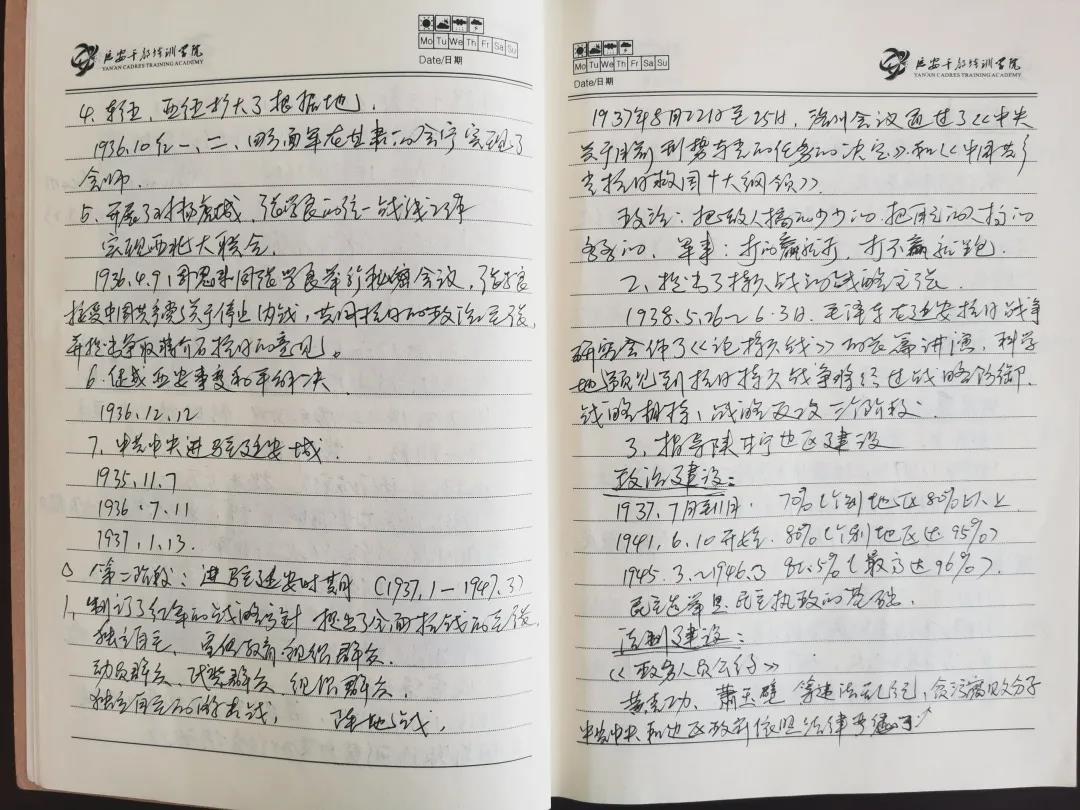 延安干部培训学院
YAN'AN CADRES TRAINING ACADEMY
Mo Tu We Th Fr Sa Su
Date/日期
4. 东征、西征扩大了根据地。
1936.10 红一、二、四方面军在甘肃的会宁实现了
会师.
5. 开展了对杨虎城、张学良的统一战线工作
实现西北大联合.
1936.4.9 周恩来同张学良举行秘密会议，张学良
接受中国共产党关于停止内战，共同抗日的政治主张,
并提出争取蒋介石抗日的意见。
6. 促成西安事变和平解决
1936.12.12
7. 中共中央进驻延安城.
1935.11.7
1936.7.11
1937.1.13.
第二阶段：进驻延安时期 (1937.1—1947.3)
1. 制订了红军的战略方针 提出了全面抗战的主张.
独立自主、宣传教育 组织群众.
动员群众、武装群众、组织群众,
独立自主的游击战, 阵地战,
Mo Tu We Th Fr Sa Su
Date/日期
延安干部培训学院
YAN'AN CADRES TRAINING ACADEMY
1937年8月22日至25日，洛川会议通过了《中央
关于目前形势与党的任务的决定》和《中国共产
党抗日救国十大纲领》.
政治：把敌人搞的少少的. 把自己的人搞的
多多的. 军事：打的赢就打，打不赢就跑.
2、提出了持久战的战略主张
1938.5.26~6.3日. 毛泽东在延安抗日战争
研究会作了《论持久战》的长篇讲演，科学
地预见到抗日持久战争将经过战略防御、
战略相持、战略反攻三个阶段.
3、指导陕甘宁边区建设
政治建设：
1937.7月到11月. 70% (个别地区80%以上
1941.6.10开始. 80% (个别地区达95%)
1945.3.~1946.3 82.5% (最高达96%).
民主选举是民主执政的基础.
法制建设：
《政务人员公约》
黄克功、萧玉璧等违法乱纪、贪污腐败分子
中共中央和边区政府依照法律